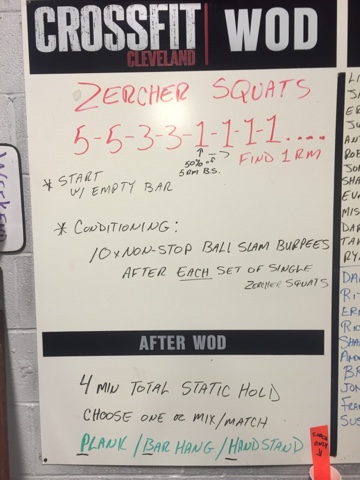 CROSSFIT WOD
CLEVELAND
ZERCHER SQUATS
5-5-3-3-1-1-1-1....
50% of
5RM B.S.
FIND 1RM
* START
W/ EMPTY BAR
* CONDITIONING:
10x NON-STOP BALL SLAM BURPEES
AFTER EACH SET OF SINGLE
ZERCHER SQUATS
AFTER WOD
4 MIN TOTAL STATIC HOLD
CHOOSE ONE or MIX/MATCH
PLANK / BAR HANG / HANDSTAND